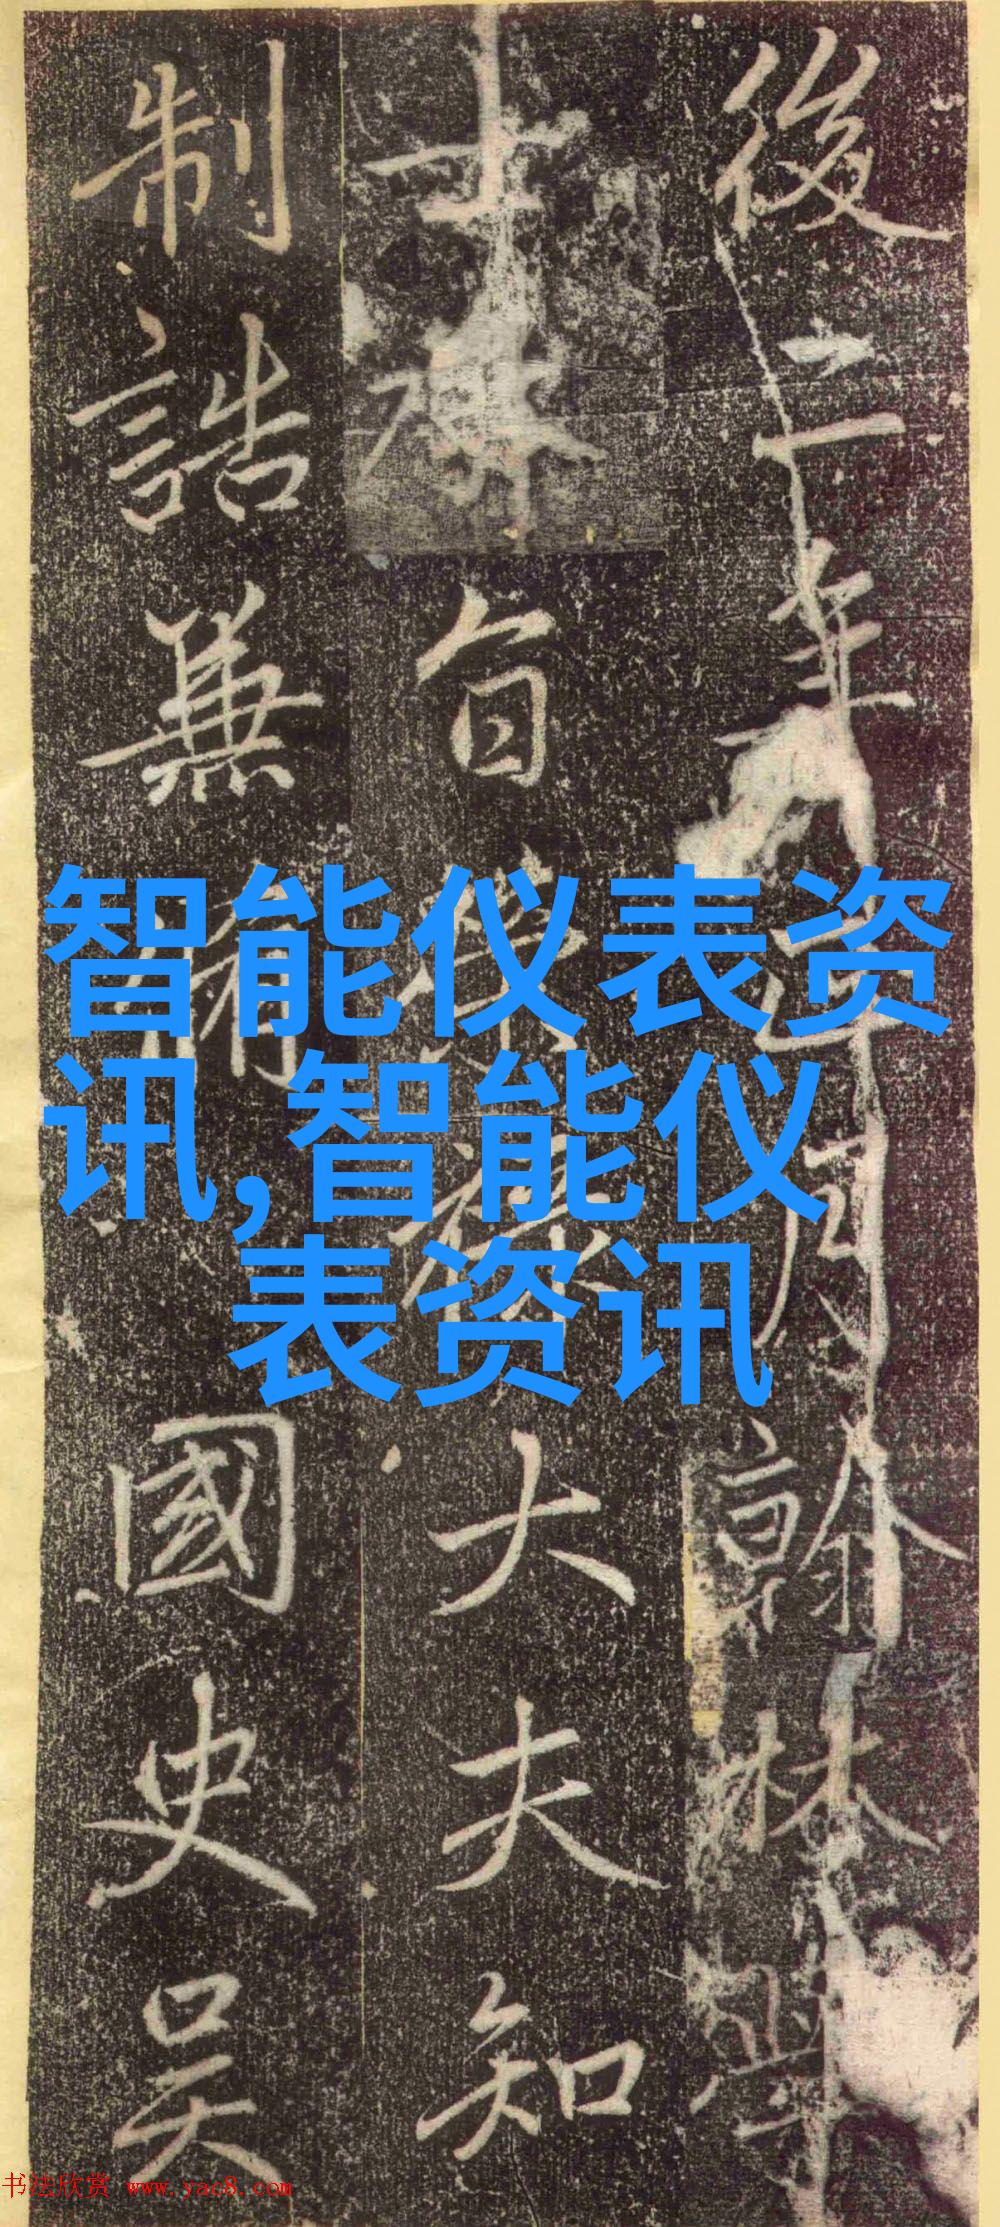 後二年月翰林學
士承旨榮祿大夫知
制誥兼脩國史吴
智能仪表资
讯,智能仪
表资讯
书法欣赏 www.yac8.com